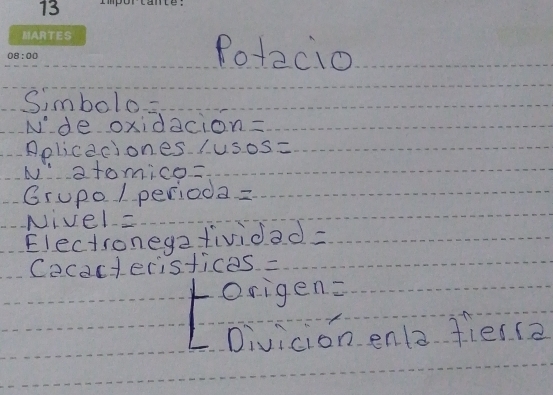 13
Importante:
MARTES
08:00
Potacio
Simbolo=
N° de oxidación=
Aplicaciones/usos=
N° atomico=
Grupo/perioda=
Nivel=
Electronegatividad=
Cacacteristicas=
Origen=
Divición enla tierra